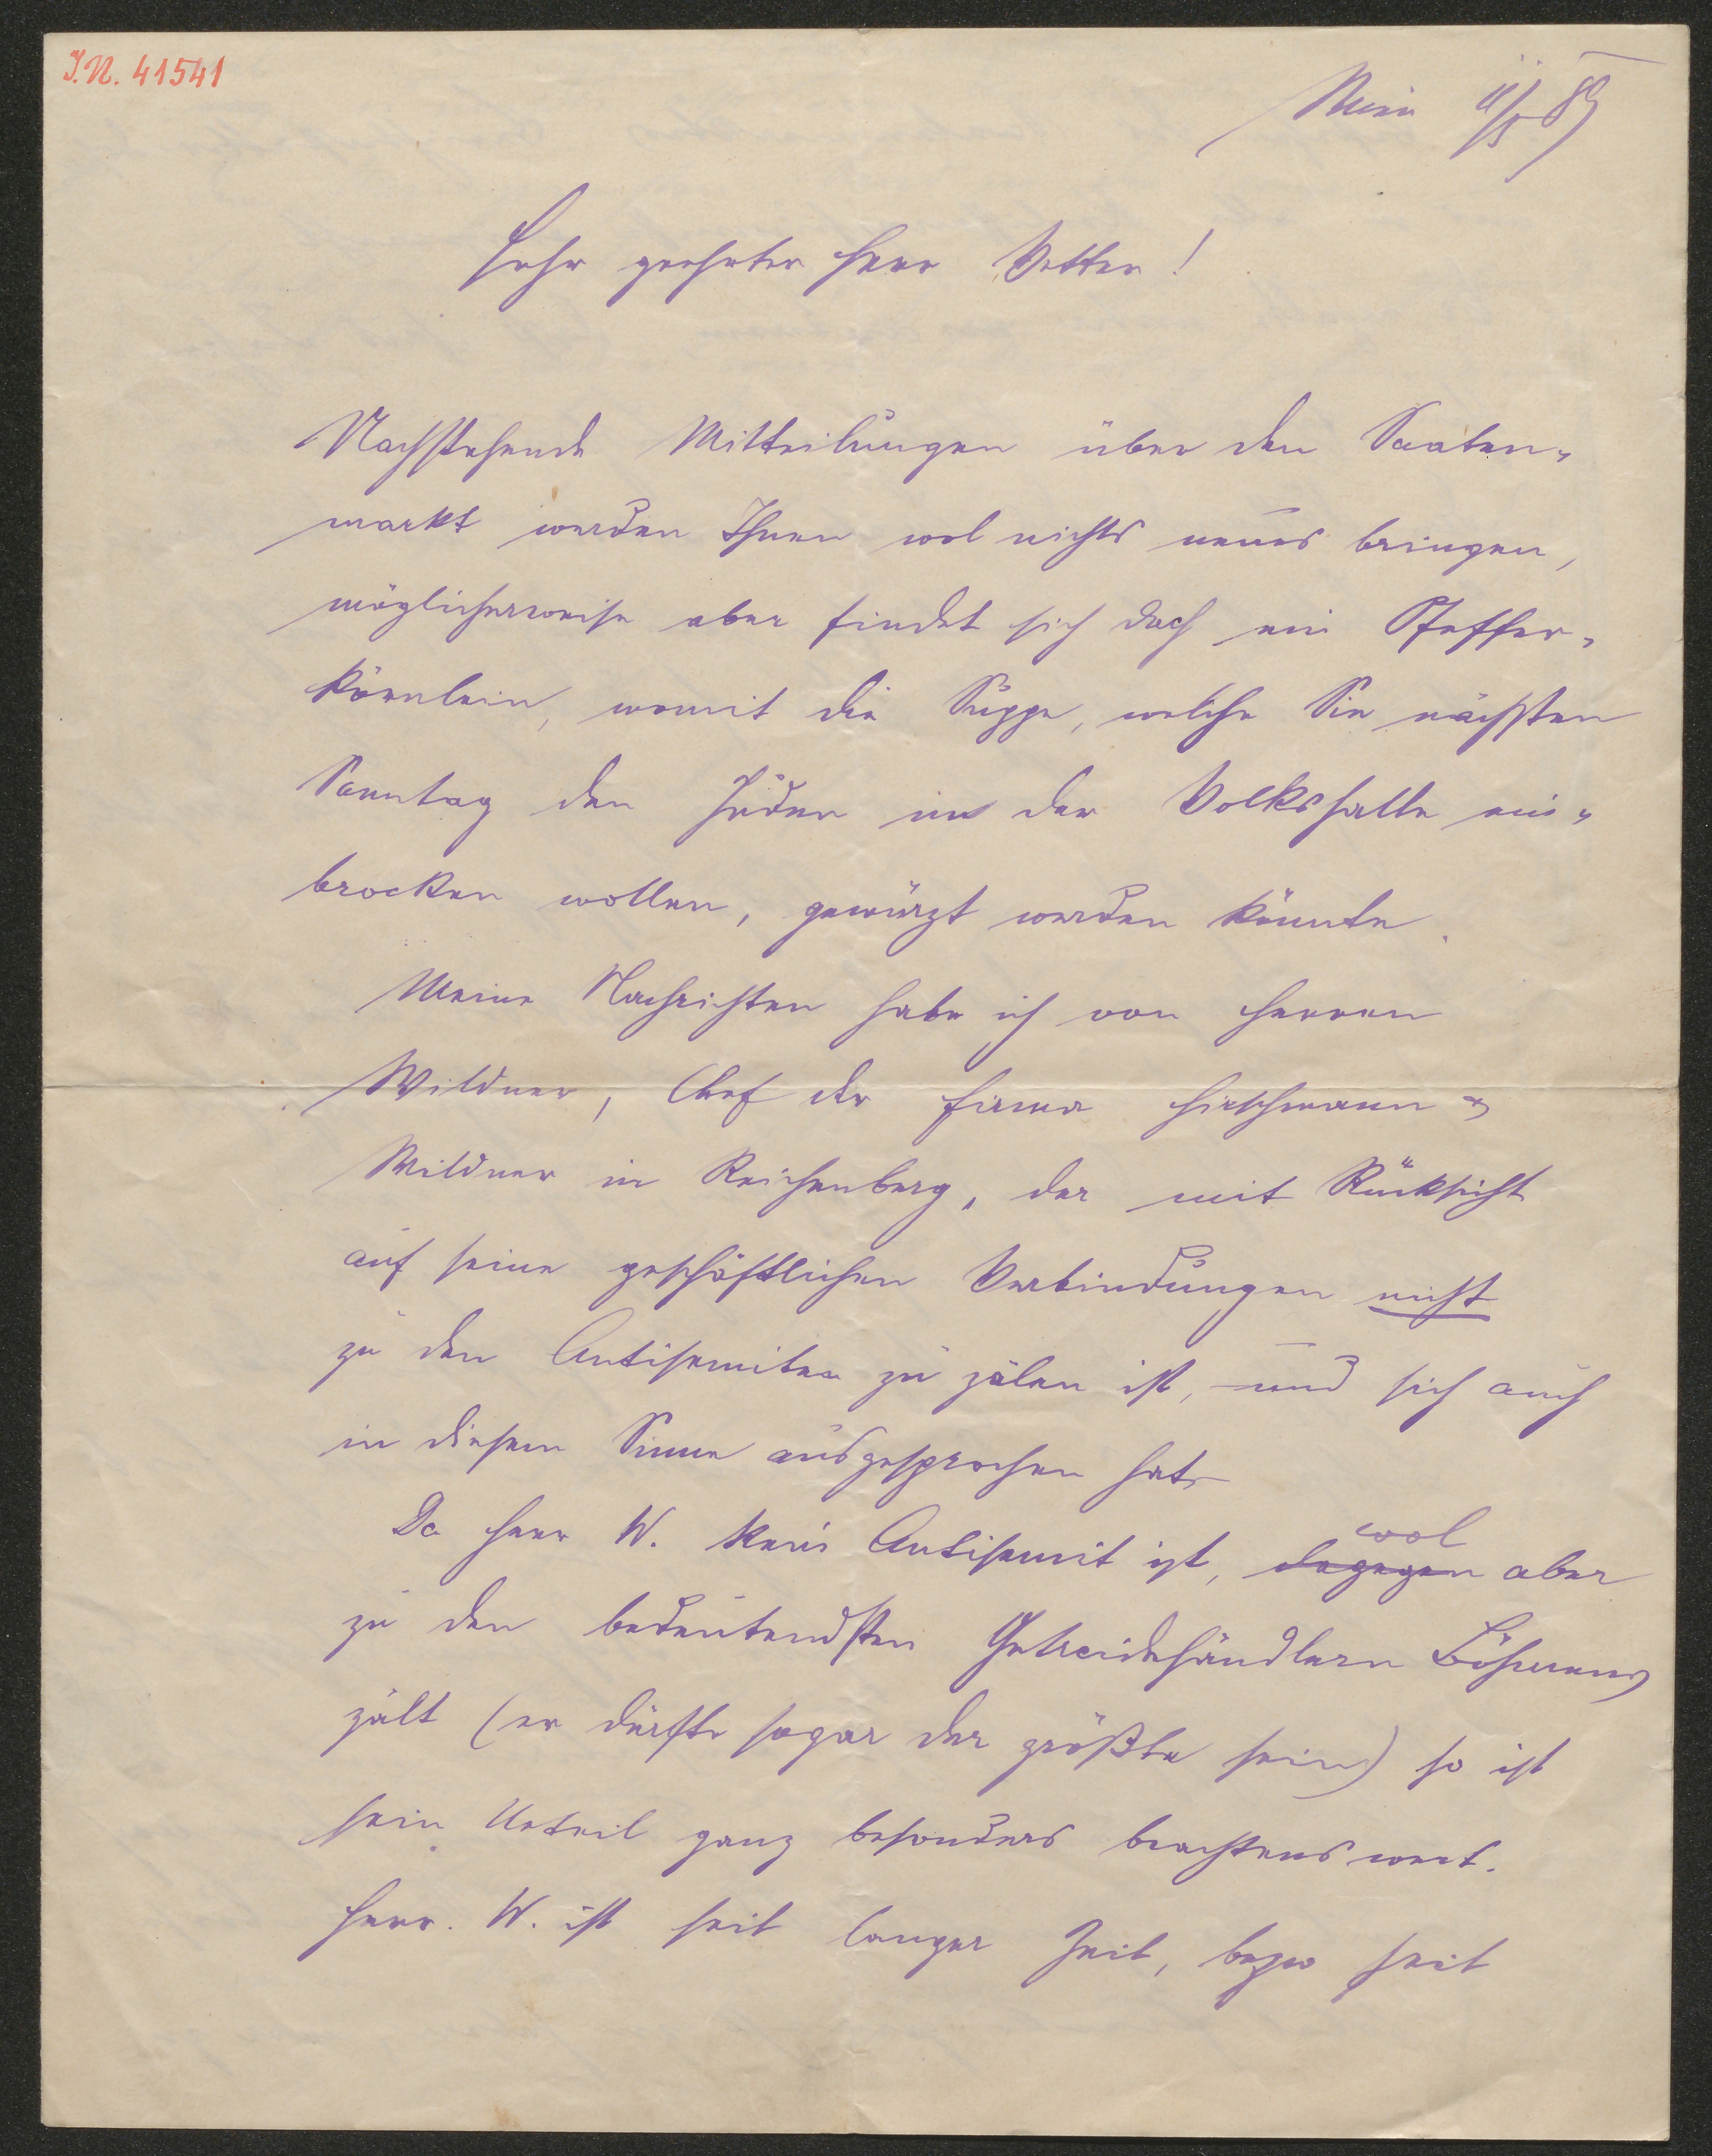 I.N. 41541
Wien 11/5 89
Sehr geehrter Herr Vetter!
Nachstehende Mitteilungen über den Saaten-
markt werden Ihnen wol nichts neues bringen,
möglicherweise aber findet sich doch ein Pfeffer-
körnlein, womit die Suppe, welche Sie nächsten
Sonntag den Juden in der Volkshalle ein-
brocken wollen, gewürzt werden könnte.
Meine Nachrichten habe ich von Herren
Wildner, Chef der Firma Hirschmann &
Wildner in Reichenberg, der mit Rücksicht
auf seine geschäftlichen Verbindungen nicht
zu den Antisemiten zu zälen ist, und sich auch
in diesem Sinne ausgesprochen hat.
Da Herr W. kein Antisemit ist, dagegen wol aber
zu den bedeutendsten Getreidehändlern Böhmens
zält (er dürfte sogar der größte sein) so ist
sein Urteil ganz besonders beachtenswert.
Herr. W. ist seit langer Zeit, bezw seit